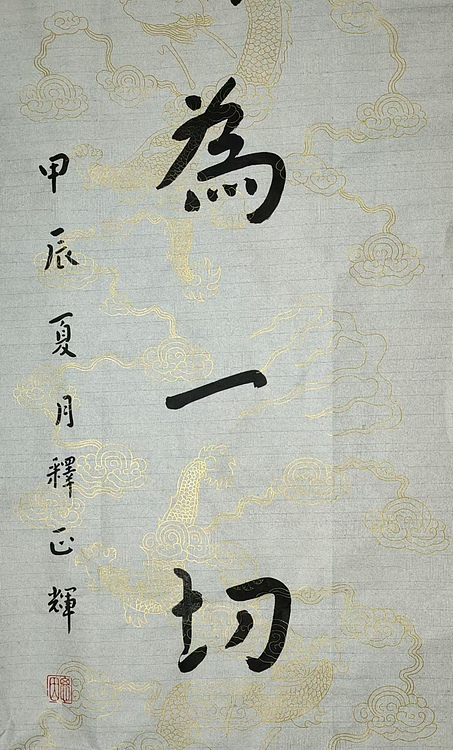 為一切
甲辰夏月釋正輝